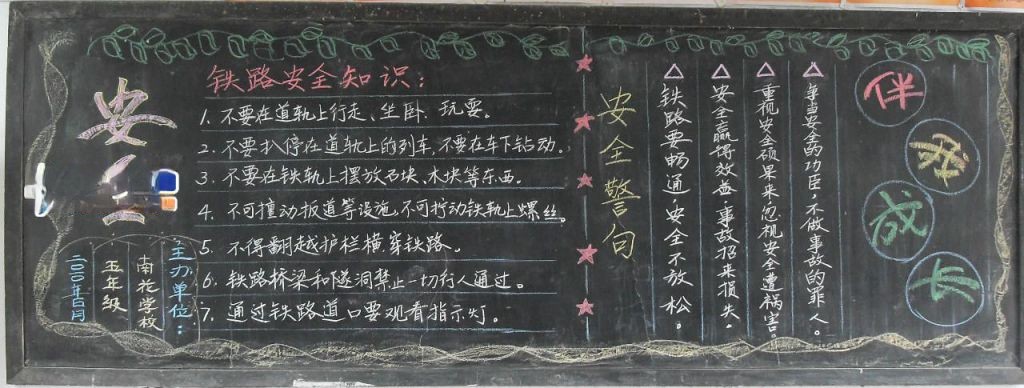 安
铁路安全知识：
1. 不要在道轨上行走、坐卧、玩耍。
2. 不要扒停在道轨上的列车,不要在车下钻动。
3. 不要在铁轨上摆放石块、木块等东西。
4. 不可撞动扳道等设施,不可拧动铁轨上螺丝。
5. 不得翻越护栏横穿铁路。
6. 铁路桥梁和隧洞禁止一切行人通过。
7. 通过铁路道口要观看指示灯。
主办单位：
南花学校
五年级
安全警句
铁路要畅通,安全不放松。
安全赢得效益,事故招来损失。
重视安全硕果来忽视安全遭祸害。
争当安全的功臣,不做事故的罪人。
伴我成长